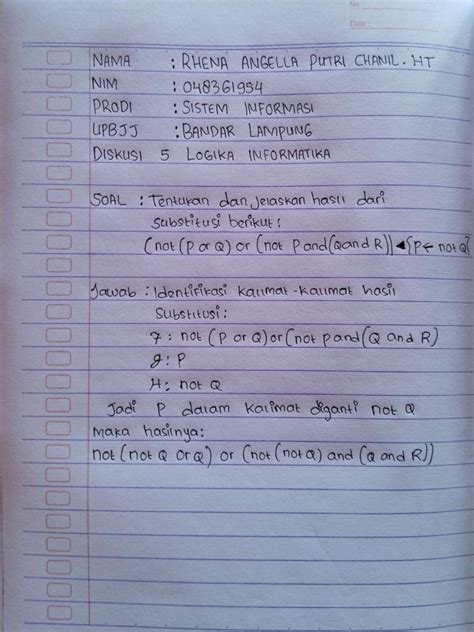 No
Date :
NAMA : RHENA ANGELLA PUTRI CHANIL. HT
NIM : 048361954
PRODI : SISTEM INFORMASI
UPBJJ : BANDAR LAMPUNG
DISKUSI 5 LOGIKA INFORMATIKA
SOAL : Tentukan dan jelaskan hasil dari
substitusi berikut :
(not (P or Q) or (not P and (Q and R)) ◄ {P ← not Q}
Jawab : Identifikasi kalimat-kalimat hasil
substitusi :
F : not (P or Q) or (not P and (Q and R)
g : P
H : not Q
Jadi P dalam kalimat diganti not Q
maka hasilnya :
not (not Q or Q) or (not (not Q) and (Q and R))